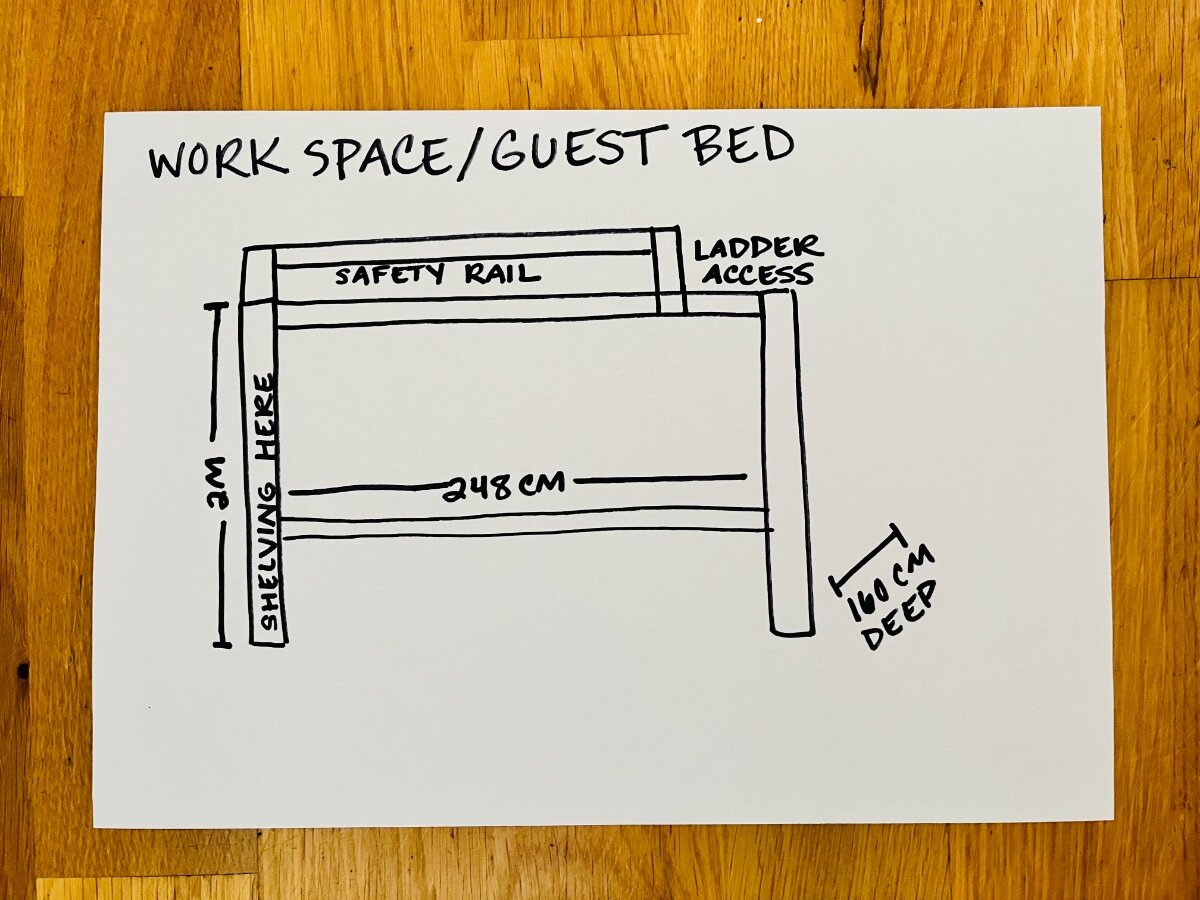 WORK SPACE/GUEST BED
SAFETY RAIL
LADDER
ACCESS
SHELVING HERE
2M
248 CM
160 CM
DEEP